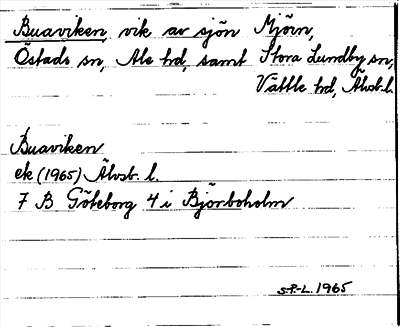 Buaviken, vik av sjön Mjörn,
Östads sn, Ale hd, samt Stora Lundby sn,
Vättle hd, Älvsb. l.
Buaviken
ek (1965) Älvsb. l.
7 B Göteborg 4 i Björboholm
S.P.-L. 1965